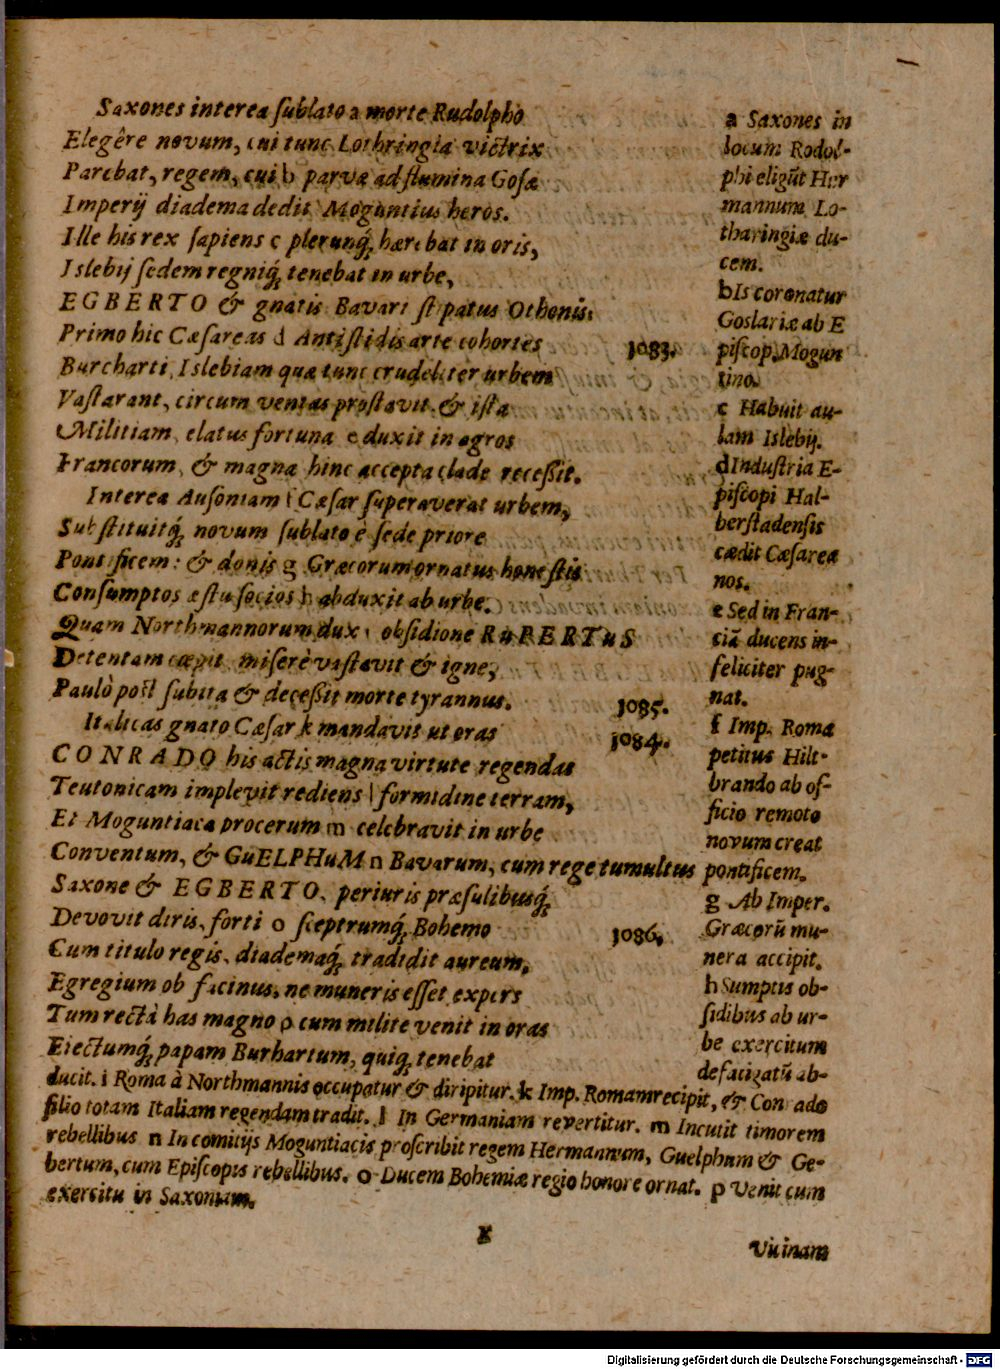 Saxones interea ſublato a morte Rudolpho
Elegêre novum, cui tunc Lothringia victrix
Parebat, regem, cui b parvæ ad flumina Goſæ
Imperij diadema dedit Moguntius heros.
Ille his rex ſapiens c plerunq́ꝫ hærebat in oris,
Islebij ſedem regniq́ꝫ tenebat in urbe,
EGBERTO & gnatis Bavari ſtipatus Othonis:
Primo hic Cæſareas d Antiſtidis arte cohortes
1083.
Burcharti, Islebiam quæ tunc crudeliter urbem
Vaſtarant, circum ventas proſtavit & iſta
Militiam, elatus fortuna e duxit in agros
Francorum, & magna hinc accepta clade receßit.
Interea Auſoniam f Cæſar ſuperaverat urbem,
Subſtituitq́ꝫ novum ſublato è ſede priore
Pontificem: & donis g Græcorum ornatus honeſtis
Conſumptos æſtu ſocios h abduxit ab urbe.
Quam Northmannorum dux i obſidione RuPERTuS
Detentam cæpit, miſerè vaſtavit & igne,
Paulò poſt ſubita & deceßit morte tyrannus.
1085.
Italicas gnato Cæſar k mandavit ut oras
1084.
CONRADO his actis magna virtute regendas
Teutonicam implevit rediens l formidine terram,
Et Moguntiaca procerum m celebravit in urbe
Conventum, & GuELPHuM n Bavarum, cum rege tumultus
Saxone & EGBERTO, periuris præſulibusq́ꝫ
Devovit diris, forti o ſceptrumq́ꝫ Bohemo
1086.
Cum titulo regis, diademaq́ꝫ tradidit aureum,
Egregium ob facinus, ne muneris eſſet expers
Tum rectà has magno p cum milite venit in oras
Eiectumq́ꝫ papam Burhartum, quiq́ꝫ tenebat
a Saxones in
locum Rodol-
phi eligũt Her
mannum Lo-
tharingiæ du-
cem.
b Is coronatur
Goslariæ ab E
piſcop. Mogun
tino.
c Habuit au-
lam Islebij.
d Induſtria E-
piſcopi Hal-
berſtadenſis
cædit Cæſarea
nos.
e Sed in Fran-
ciã ducens in-
feliciter pug-
nat.
f Imp. Roma
petitus Hilt-
brando ab of-
ficio remoto
novum creat
pontificem.
g Ab Imper.
Græcorũ mu-
nera accipit.
h Sumptis ob-
ſidibus ab ur-
be exercitum
defatigatũ ab-
ducit. i Roma à Northmannis occupatur & diripitur. k Imp. Romam recipit, & Conrado
filio totam Italiam regendam tradit. l In Germaniam revertitur. m Incutit timorem
rebellibus n In comitijs Moguntiacis proſcribit regem Hermannum, Guelphum & Ge-
bertum, cum Epiſcopis rebellibus. o Ducem Bohemiæ regio honore ornat. p Venit cum
exercitu in Saxoniam.
X
Vicinam
Digitalisierung gefördert durch die Deutsche Forschungsgemeinschaft - DFG